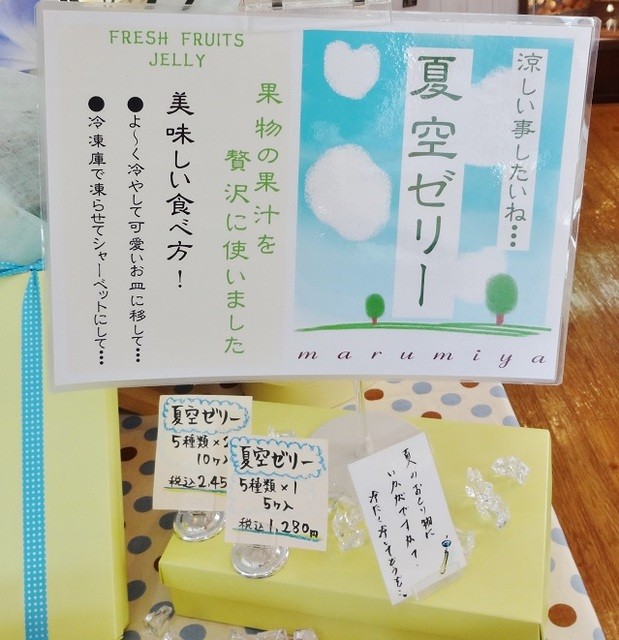 涼しい事したいね…
夏空ゼリー
marumiya
FRESH FRUITS
JELLY
果物の果汁を
贅沢に使いました
美味しい食べ方！
●よ〜く冷やして可愛いお皿に移して…
●冷凍庫で凍らせてシャーベットにして…
夏空ゼリー
5種類×
10ヶ入
税込2,45
夏空ゼリー
5種類×1
5ヶ入
税込1,280円
夏のおくり物に
いかがですか？